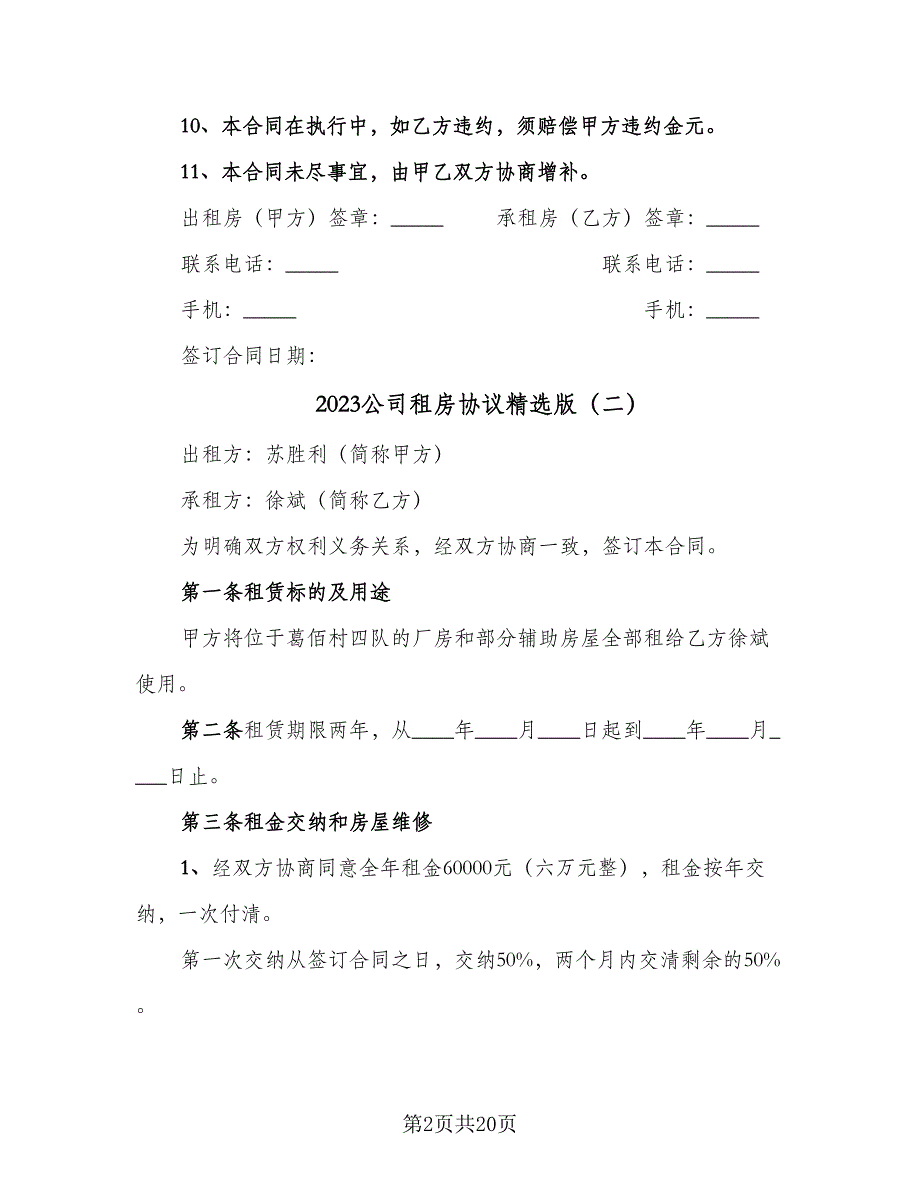 10、本合同在执行中，如乙方违约，须赔偿甲方违约金元。
11、本合同未尽事宜，由甲乙双方协商增补。
出租房（甲方）签章：_____ 承租房（乙方）签章：_____
联系电话：_____ 联系电话：_____
手机：_____ 手机：_____
签订合同日期：
2023公司租房协议精选版（二）
出租方：苏胜利（简称甲方）
承租方：徐斌（简称乙方）
为明确双方权利义务关系，经双方协商一致，签订本合同。
第一条租赁标的及用途
甲方将位于葛佰村四队的厂房和部分辅助房屋全部租给乙方徐斌
使用。
第二条租赁期限两年，从____年____月____日起到____年____月_
___日止。
第三条租金交纳和房屋维修
1、经双方协商同意全年租金60000元（六万元整），租金按年交
纳，一次付清。
第一次交纳从签订合同之日，交纳50%，两个月内交清剩余的50%
。
第2页共20页